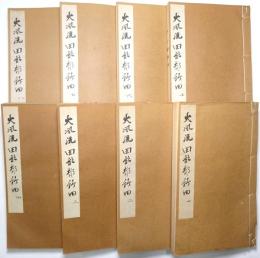 大風流田能邨竹田
大風流田能邨竹田
大風流田能邨竹田
大風流田能邨竹田
大風流田能邨竹田
大風流田能邨竹田 三
大風流田能邨竹田 二
大風流田能邨竹田 一